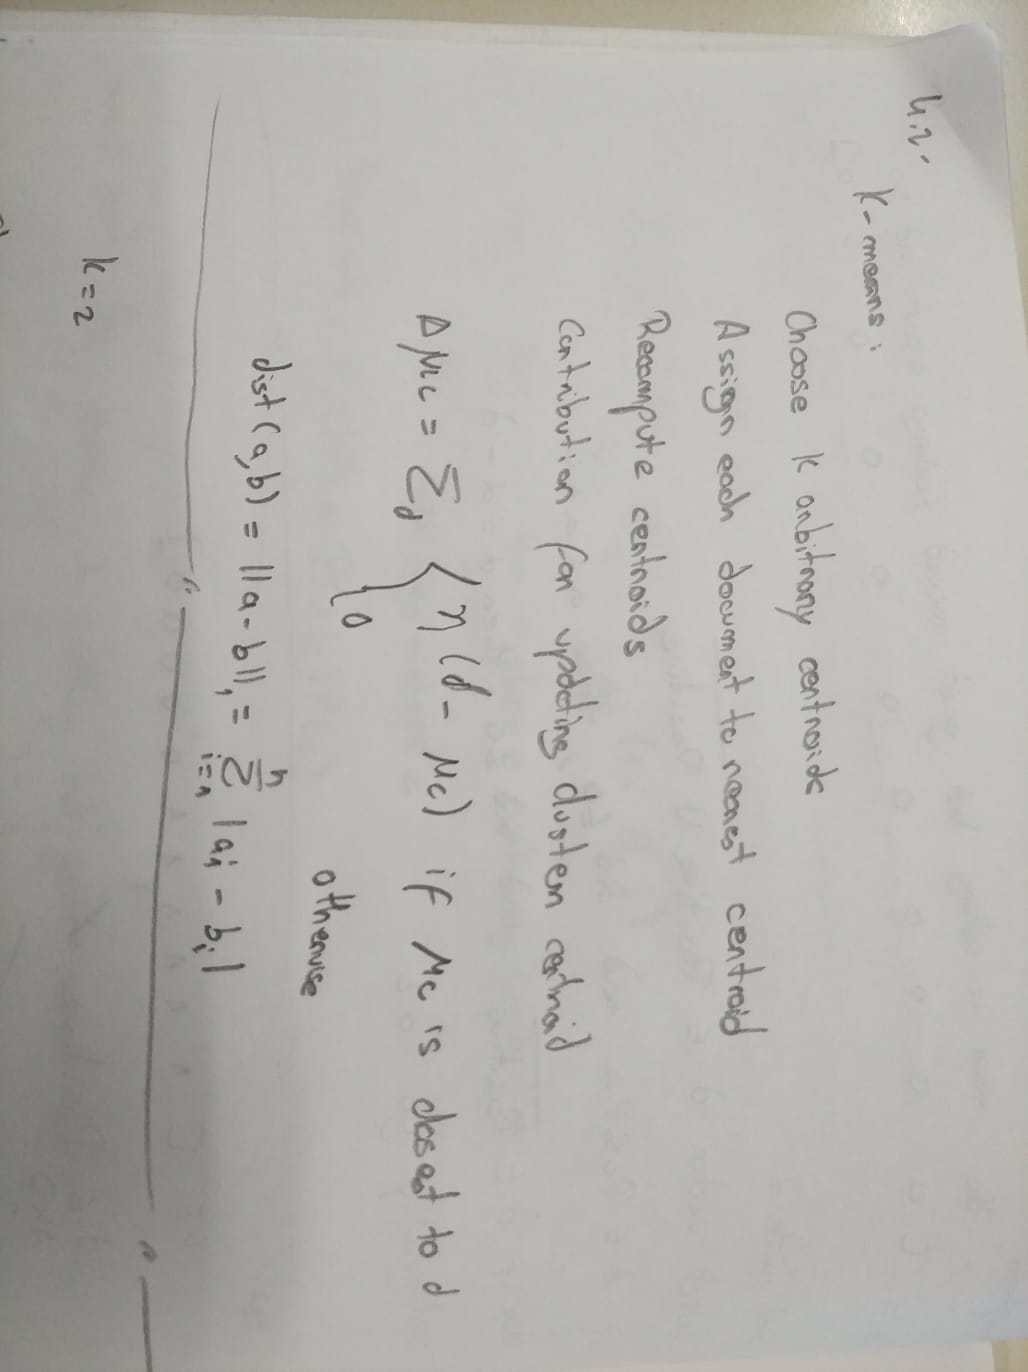 4.2.
K-means:
Choose k arbitrary centroids
Assign each document to nearest centroid
Recompute centroids
Contribution for updating cluster centroid
Δμc = Σd { η(d - μc) if μc is closest to d
0 otherwise
dist(a,b) = ||a-b||₁ = Σ i=1 n |ai - bi|
k=2